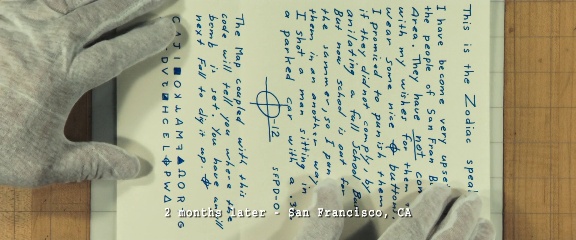 This is the Zodiac spea
I have become very upse
the people of San Fran B
Area. They have not com
with my wishes for them
wear some nice ⌖ button
I promiced to punish them
if they did not comply, by
anilating a full School Bu
But now school is out for
the summer, so I pun
them in an another way.
I shot a man sitting in
a parked car with a .38
⌖-12 SFPD-0
The Map coupled with this
code will tell you where the
bomb is set. You have untill
next Fall to dig it up. ⌖
2 months later - San Francisco, CA